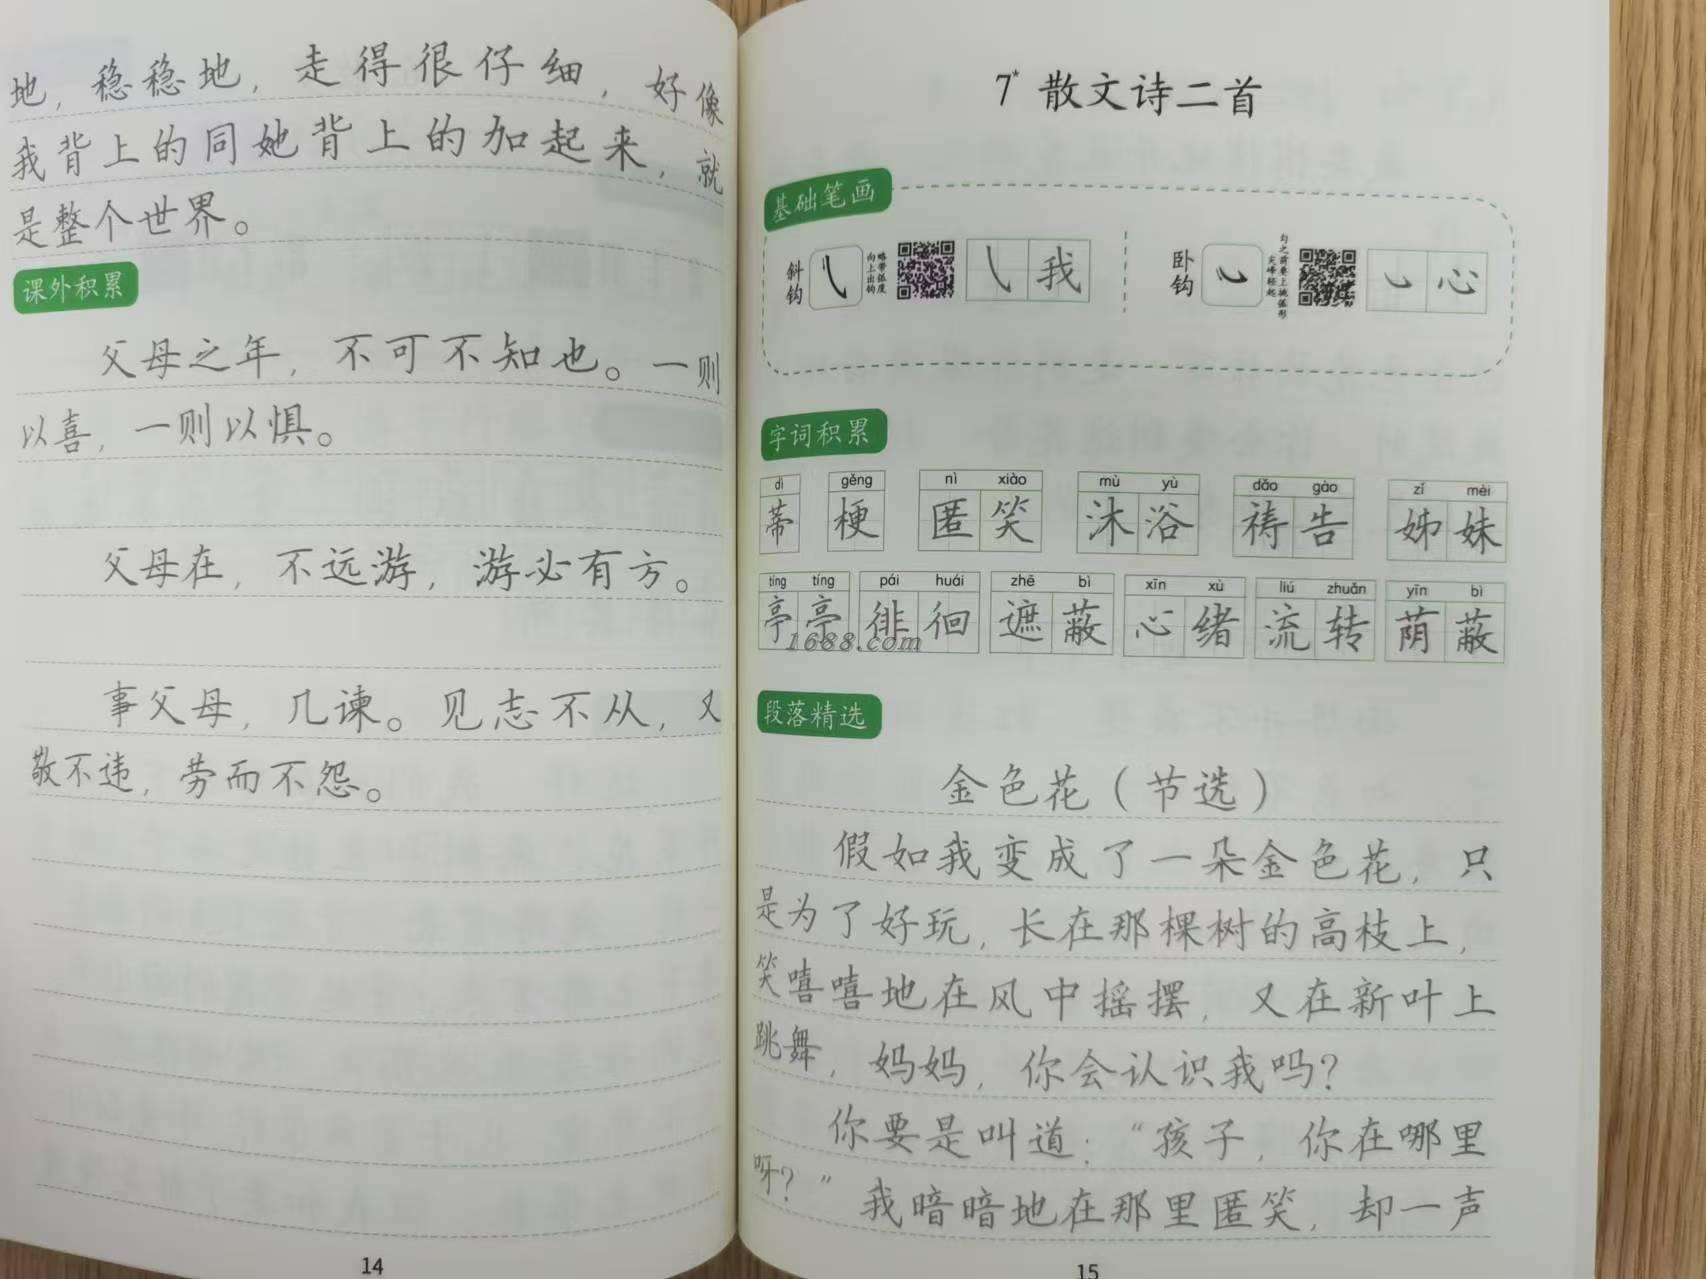 地，稳稳地，走得很仔细，好像
我背上的同她背上的加起来，就
是整个世界。
课外积累
父母之年，不可不知也。一则
以喜，一则以惧。
父母在，不远游，游必有方。
事父母，几谏。见志不从，又
敬不违，劳而不怨。
14
7* 散文诗二首
基础笔画
斜钩
略带弧度
向上出钩
我
卧钩
心
字词积累
dì gěng nì xiào mù yù dǎo gào zǐ mèi
蒂 梗 匿笑 沐浴 祷告 姊妹
tíng tíng pái huái zhē bì xīn xù liú zhuǎn yīn bì
亭亭 徘徊 遮蔽 心绪 流转 荫蔽
1688.com
段落精选
金色花（节选）
假如我变成了一朵金色花，只
是为了好玩，长在那棵树的高枝上，
笑嘻嘻地在风中摇摆，又在新叶上
跳舞，妈妈，你会认识我吗？
你要是叫道：“孩子，你在哪里
呀？”我暗暗地在那里匿笑，却一声
15